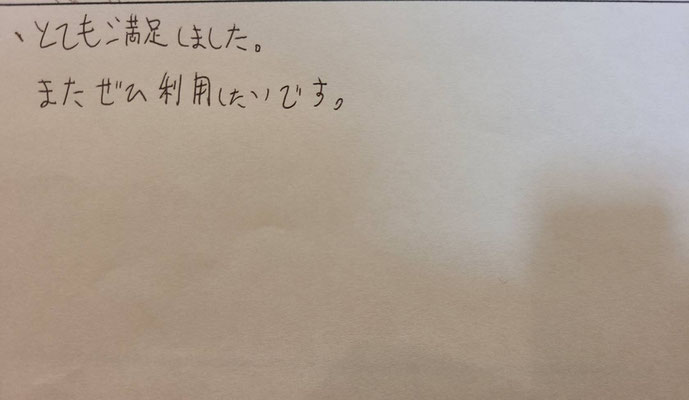 、とてもご満足しました。
またぜひ利用したいです。